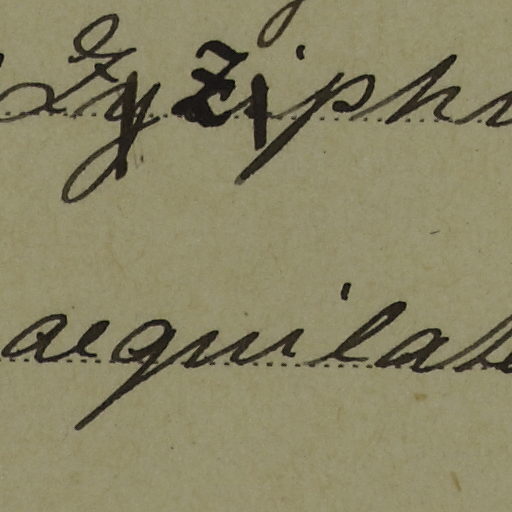 Zyziph
aequilat